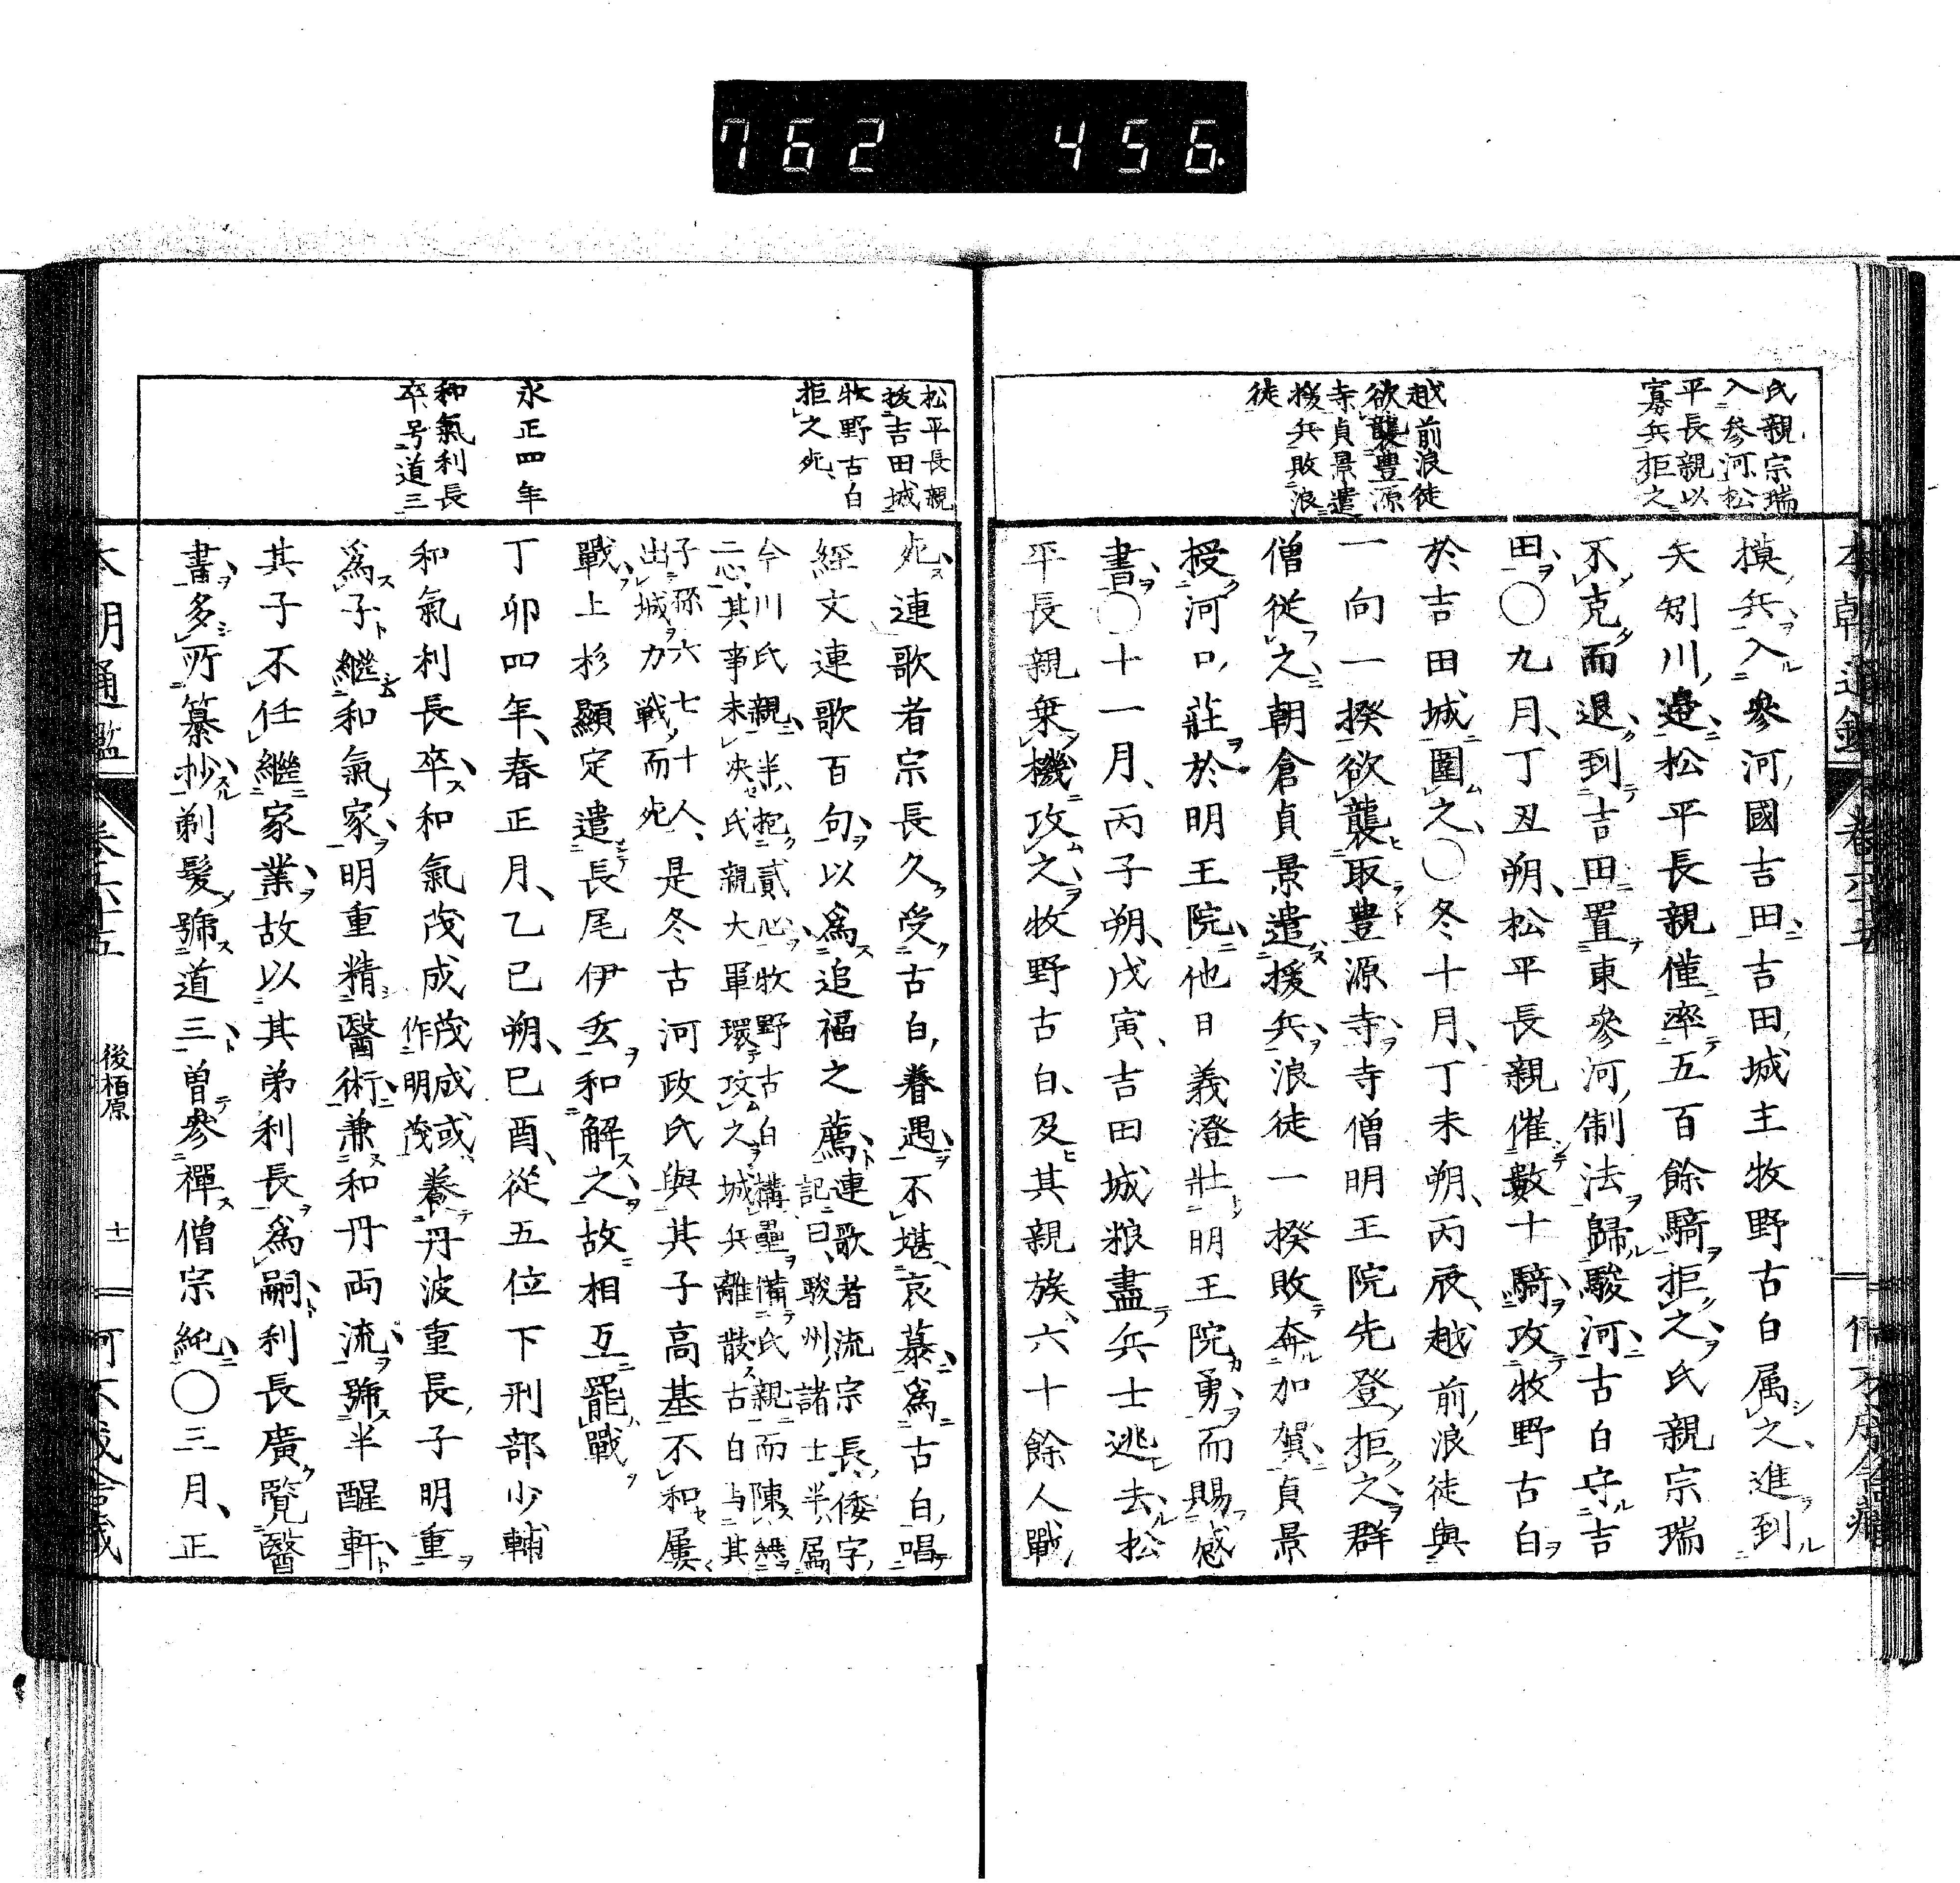 762 456
氏親宗瑞
入參河松
平長親以
寡兵拒之
越前浪徒
欲襲豊源
寺貞景遣
援兵敗浪
徒
模兵入參河國吉田吉田城主牧野古白属之進到
矢矧川邉松平長親僅率五百餘騎拒之氏親宗瑞
不克而退到吉田置東參河制法歸駿河古白守吉
田〇九月丁丑朔松平長親催數十騎攻牧野古白
於吉田城圍之〇冬十月丁未朔丙辰越前浪徒與
一向一揆欲襲取豊源寺寺僧明王院先登拒之群
僧從之朝倉貞景遣援兵浪徒一揆敗奔加賀貞景
授河口莊於明王院他日義澄壯明王院勇而賜感
書〇十一月丙子朔戊寅吉田城粮盡兵士逃去松
平長親乗機攻之牧野古白及其親族六十餘人戰
松平長親
拔吉田城
牧野古白
拒之死
永正四年
和氣利長
卒号道三
死連歌者宗長久受古白眷遇不堪哀慕爲古白唱
經文連歌百句以爲追福之薦連歌者流宗長倭字
記曰駿州諸士半属
今川氏親半抱貳心牧野古白構壘備氏親而陳無
二心其事未決氏親大軍環攻之城兵離散古白与其
子孫六七十人
出城力戦而死是冬古河政氏與其子高基不和屢
戰上杉顯定遣長尾伊玄和解之故相互罷戰
丁卯四年春正月乙巳朔己酉從五位下刑部少輔
和氣利長卒和氣茂成茂成或
作明茂養丹波重長子明重
爲子繼和氣家明重精醫術兼和丹両流號半醒軒
其子不任繼家業故以其弟利長爲嗣利長廣覧醫
書多所纂抄剃髮號道三曽參禪僧宗純〇三月正
後栢原
十一